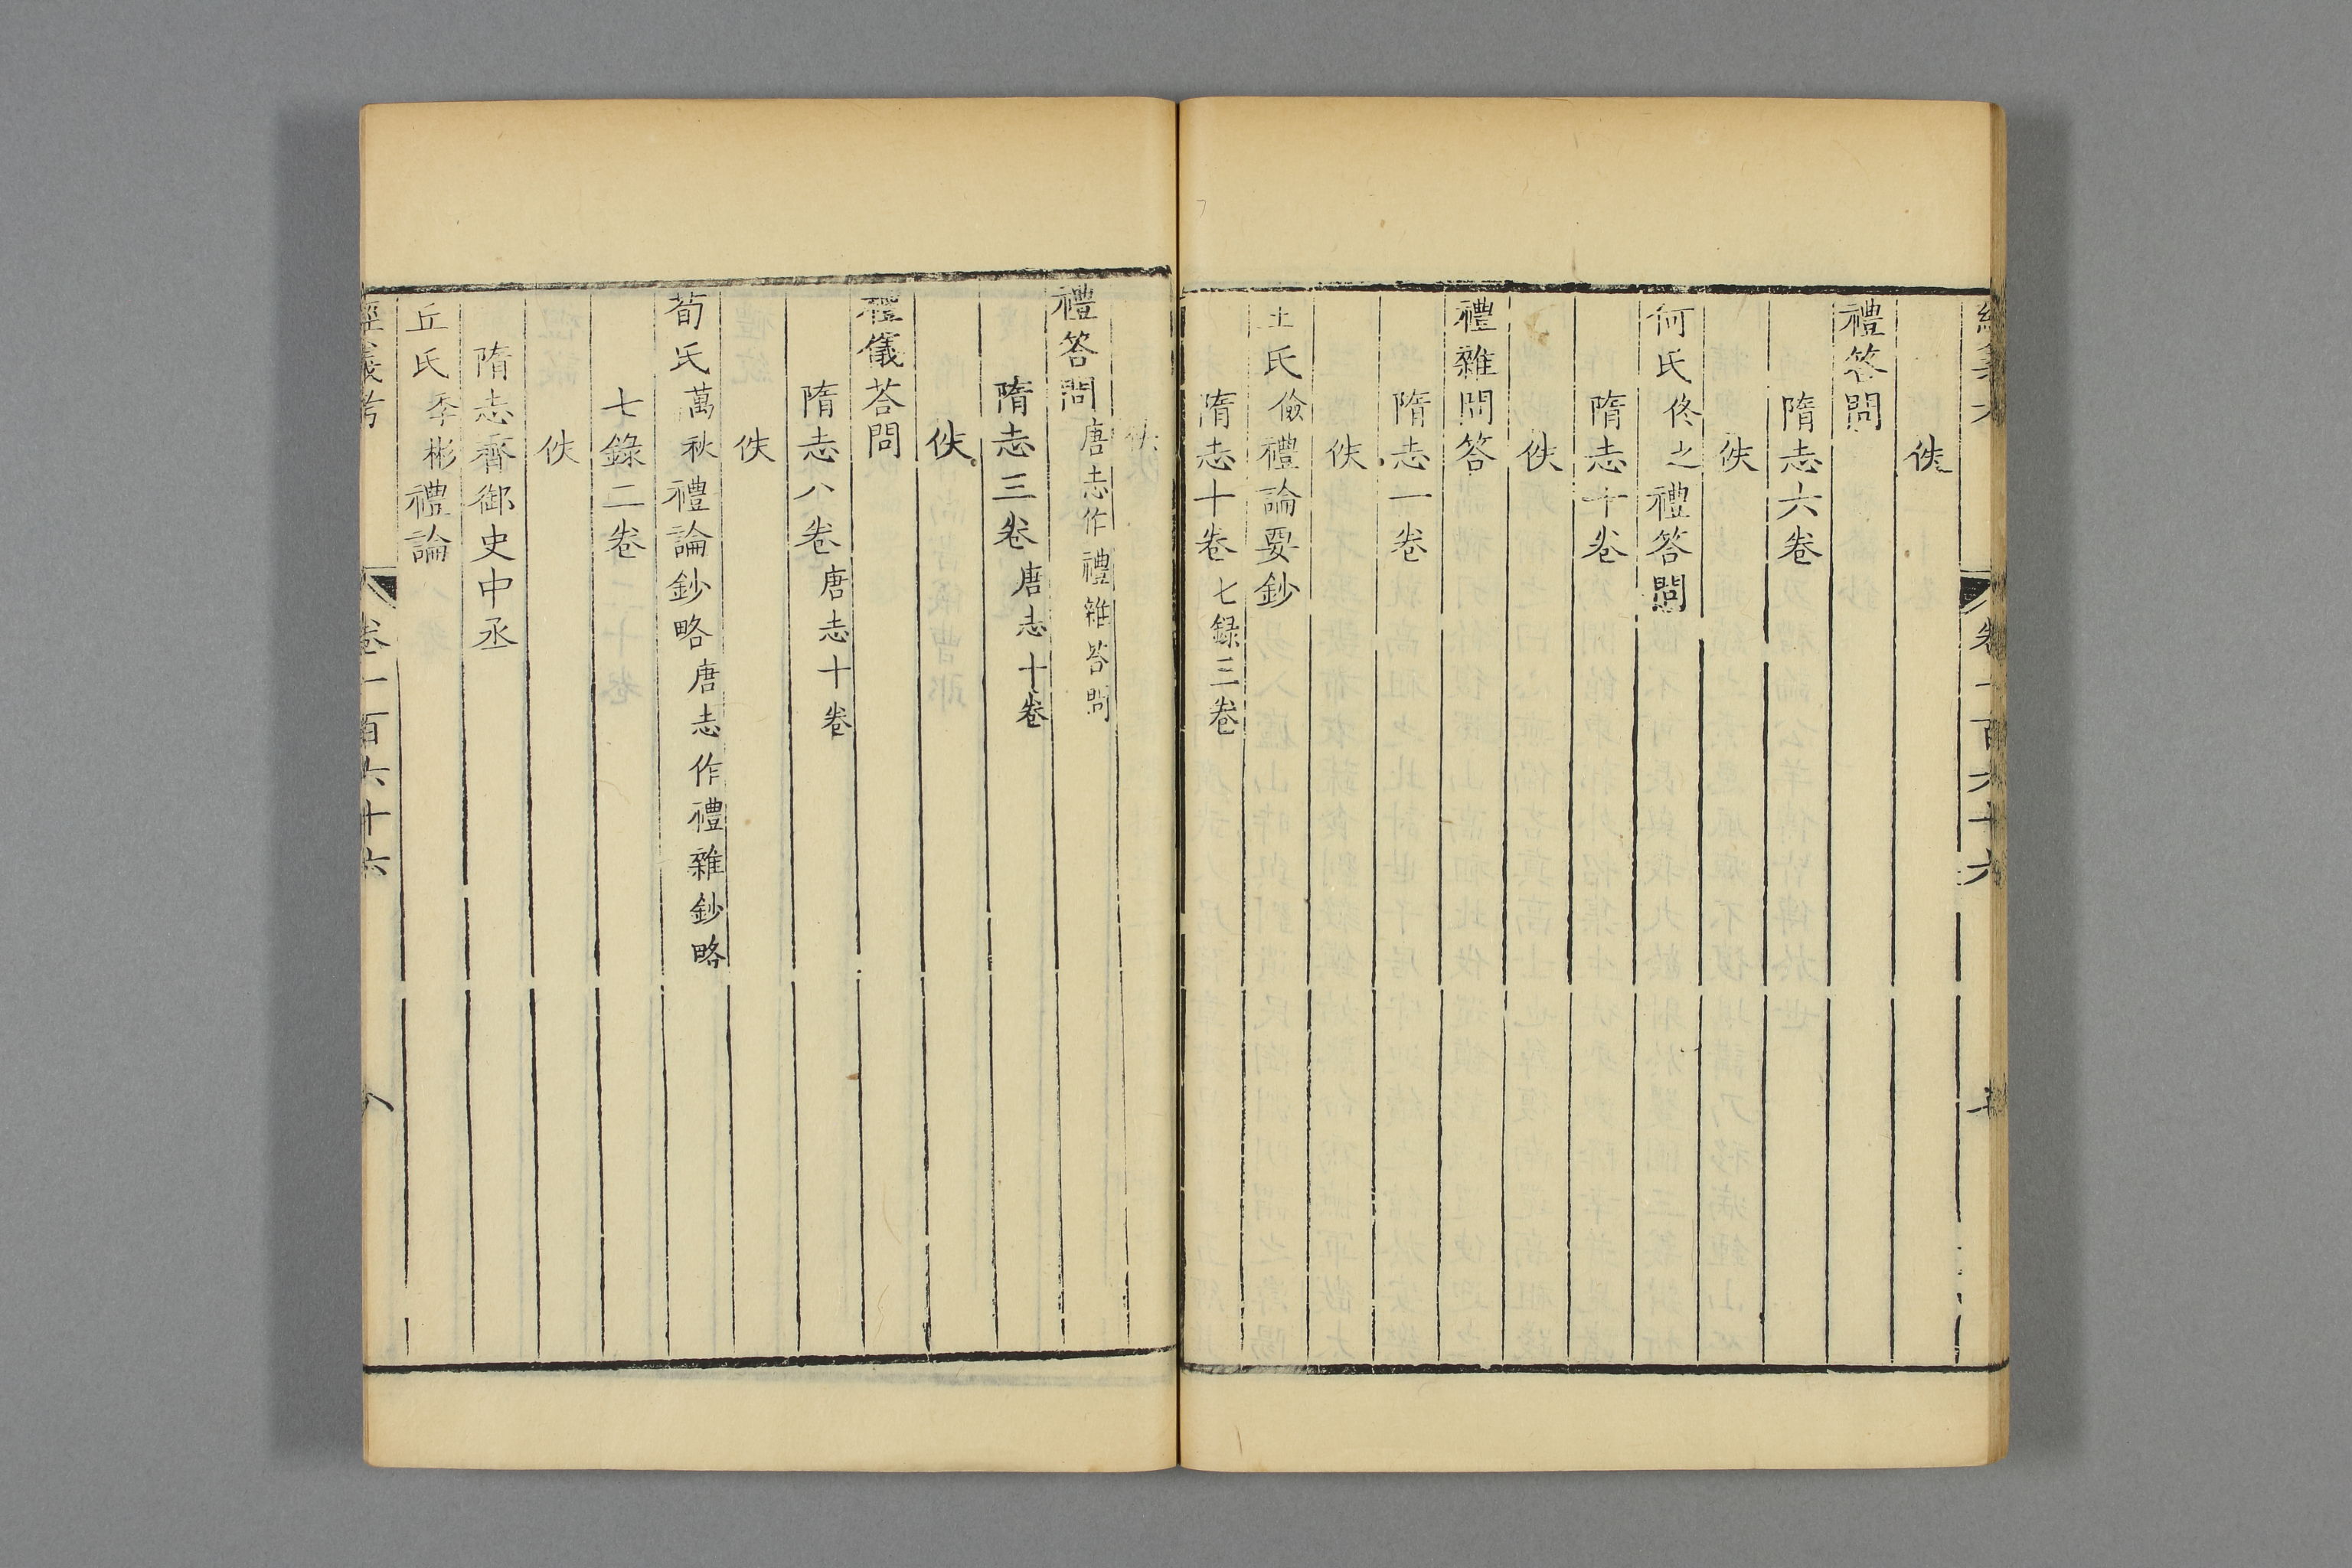 佚
禮答問
隋志六卷
佚
何氏佟之禮答問
隋志十卷
佚
禮雜問答
隋志一卷
佚
王氏儉禮論要鈔
隋志十卷七錄三卷
佚
禮答問唐志作禮雜答問
隋志三卷唐志十卷
佚
禮儀荅問
隋志八卷唐志十卷
佚
荀氏萬秋禮論鈔略唐志作禮雜鈔略
七錄二卷
佚
隋志齊御史中丞
丘氏季彬禮論
經義考 卷一百六十六 八